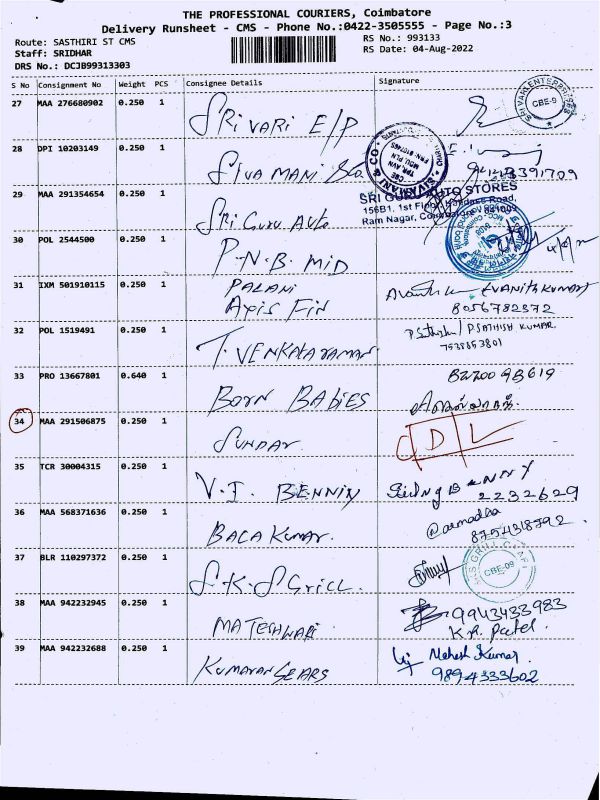 THE PROFESSIONAL COURIERS, Coimbatore
Delivery Runsheet - CMS - Phone No.:0422-3505555 - Page No.:3
Route: SASTHIRI ST CMS
RS No.: 993133
Staff: SRIDHAR
RS Date: 04-Aug-2022
DRS No.: DCJB99313303
S No Consignment No Weight PCS Consignee Details Signature
27 MAA 276680902 0.250 1 SRI VARI E/P
SRI VARI ENTERPRISES
CBE-9
28 DPI 10203149 0.250 1 SIVA MANI & Co
SIVAMANI & CO
29 MAA 291354654 0.250 1 SRI GURU AUTO
SRI GURU AUTO STORES
156B1, 1st Floor, Road,
Ram Nagar, Coimbatore - 641009
30 POL 2544500 0.250 1 P.N.B. MID
31 IXM 501910115 0.250 1 PALANI
AXIS FIN
(VANITHKUMAR)
8056782372
32 POL 1519491 0.250 1 T. VENKATARAMAN
P Sathish / P.SATHISH KUMAR.
7538853801
33 PRO 13667801 0.640 1 BORN BABIES
34 MAA 291506875 0.250 1 SUNDAR
D L
35 TCR 30004315 0.250 1 V.J. BENNIX
2232629
36 MAA 568371636 0.250 1 BALA KUMAR.
37 BLR 110297372 0.250 1 S.K.S GRILL.
CBE-09
38 MAA 942232945 0.250 1 MATESHWARI
9943433983
K.R. Patel.
39 MAA 942232688 0.250 1 KUMARAN GEARS
Mahesh Kumar.
9894333602